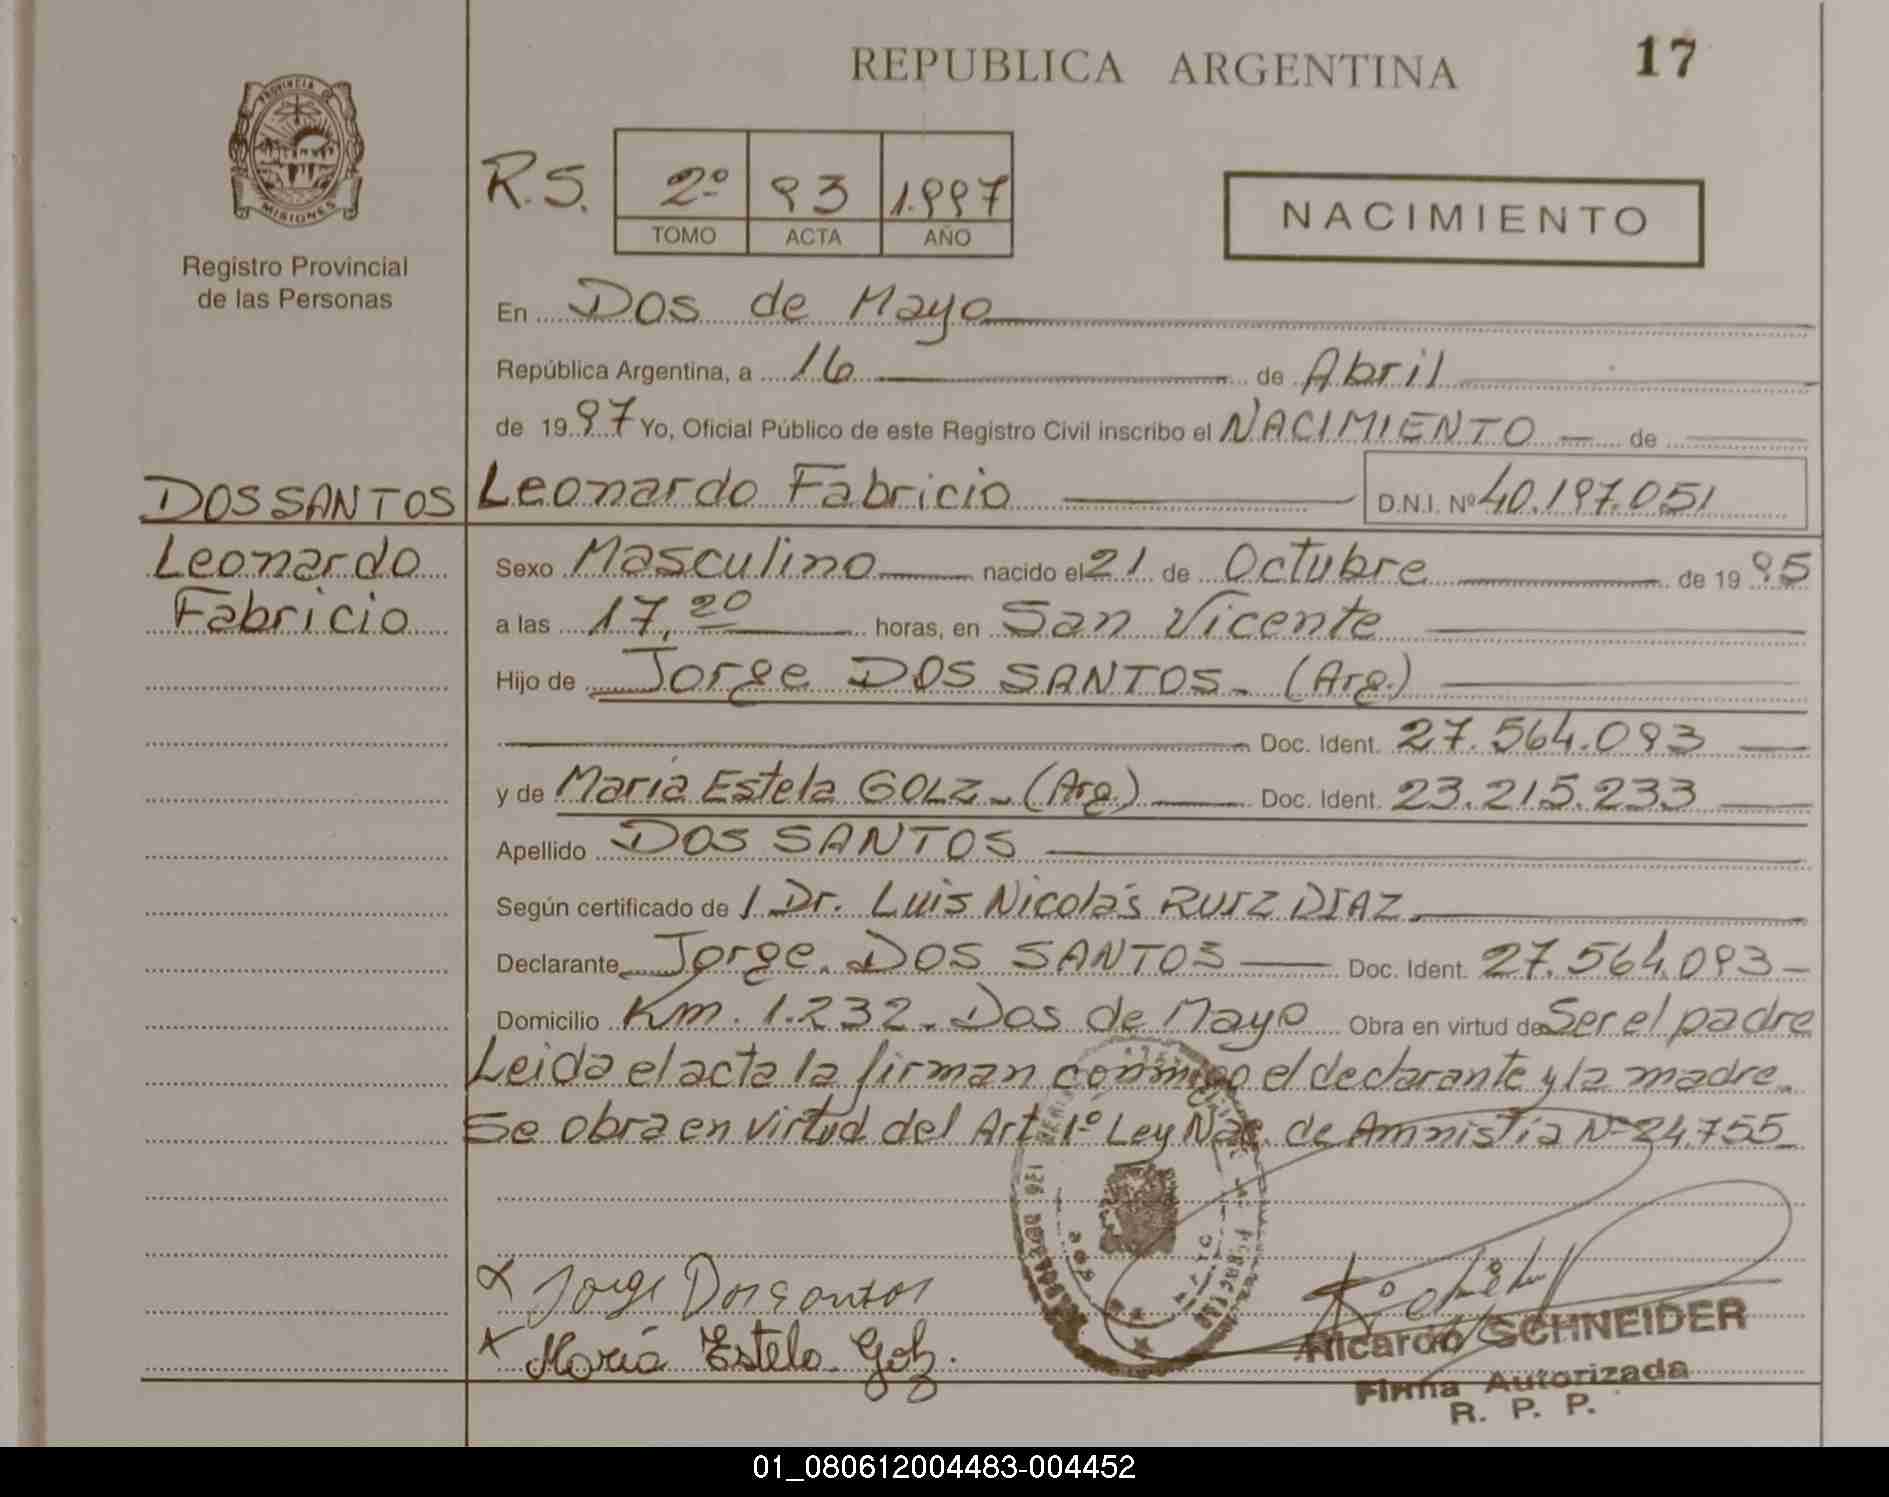 REPUBLICA ARGENTINA
17
PROVINCIA DE
MISIONES
Registro Provincial
de las Personas
R.S.
2º 93 1.997
TOMO ACTA AÑO
NACIMIENTO
En Dos de Mayo
República Argentina, a 16 de Abril
de 1997 Yo, Oficial Público de este Registro Civil inscribo el NACIMIENTO de
DOS SANTOS
Leonardo
Fabricio
Leonardo Fabricio D.N.I. Nº 40.197.051
Sexo Masculino nacido el 21 de Octubre de 1995
a las 17,20 horas, en San Vicente
Hijo de Jorge DOS SANTOS. (Arg.)
Doc. Ident. 27.564.093
y de María Estela GOLZ. (Arg.) Doc. Ident. 23.215.233
Apellido DOS SANTOS
Según certificado de 1 Dr. Luis Nicolás RUIZ DIAZ.
Declarante Jorge DOS SANTOS Doc. Ident. 27.564.093
Domicilio Km. 1.232. Dos de Mayo Obra en virtud de Ser el padre
Leida el acta la firman conmigo el declarante y la madre.
Se obra en virtud del Art. 1º Ley Nac. de Amnistia Nº 24.755
x Jorge Dos santos
x María Estela Golz.
Ricardo SCHNEIDER
Firma Autorizada
R. P. P.
01_080612004483-004452